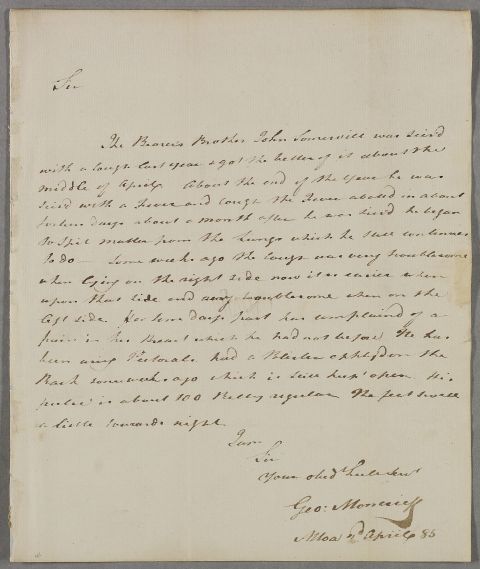 Sir
The Bearers Brother John Somervill was seized
with a Cough last year & got the better of it about the
middle of April. About the end of the Year he was
seized with a Fever and Cough the Fever abated in about
fourteen days about a month after he was seized he began
to Spit matter from the Lungs which he still continues
to do — Some weeks ago the Cough was very troublesome
when lying on the right side now it is easier when
upon that side and very troublesome when on the
left side. For some days past has complained of a
pain in his Breast which he had not before He has
been using Pectorals had a Blister applied on the
Back some weeks ago which is still kept open. His
pulse is about 100 Belly regular The feet swell
a little towards night
I am
Sir
Your obedt. huble Servt
Geo: Moncrieff
Alloa April 85